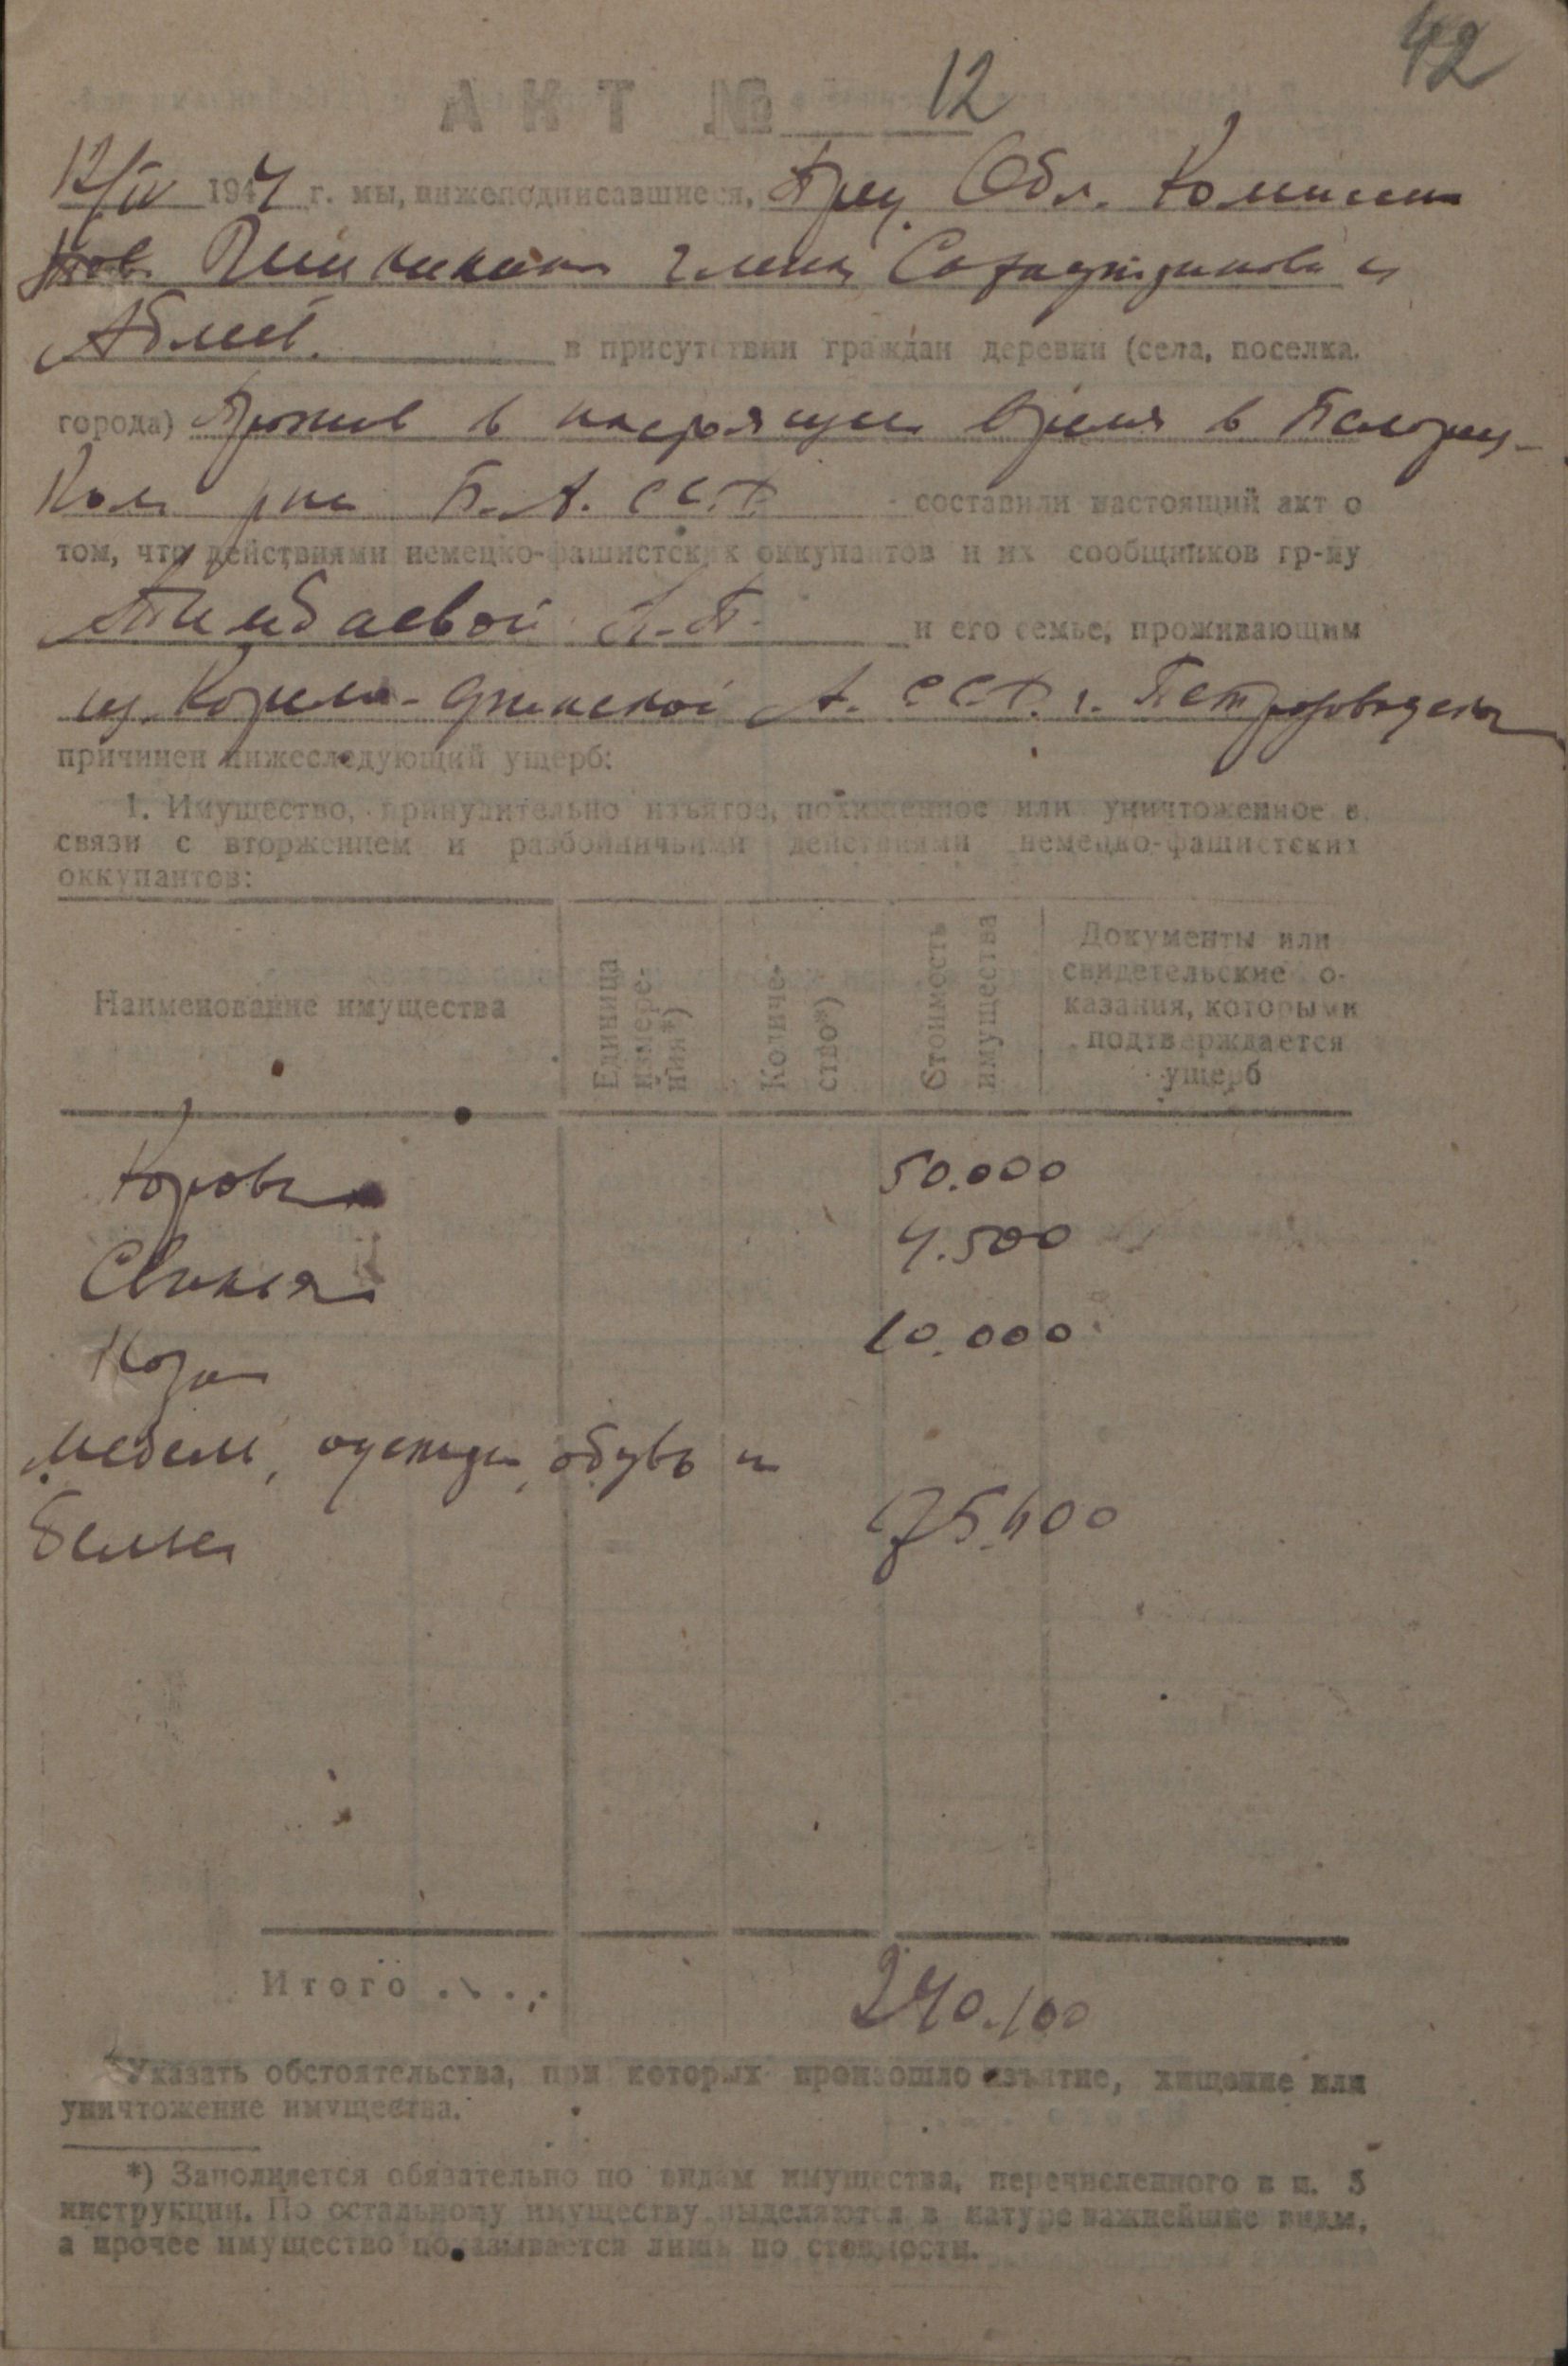 42
АКТ № 12
12/IV 1944 г. мы, нижеподписавшиеся, Пред. Обл. Комиссии
тов. члены и
Аблет. в присутствии граждан деревни (села, поселка.
города) Прожив в настоящее время в Белорец-
ком р-не Б.А.ССР составили настоящий акт о
том, что действиями немецко-фашистских оккупантов и их сообщников гр-ну
и его семье, проживающим
Карело-Финской А. ССР. г. Петрозаводск
причинен нижеследующий ущерб:
1. Имущество, принудительно изъятое, похищенное или уничтоженное в
связи с вторжением и разбойничьими действиями немецко-фашистских
оккупантов:
Наименование имущества
Единица измере-ния*)
Количе-ство*)
Стоимость имущества
Документы или
свидетельские о-
казания, которыми
подтверждается
ущерб
Корова 50.000
Свинья 4.500
Коза 10.000
мебель, одежда, обувь и
белье 175.600
Итого . . . . 240.100
Указать обстоятельства, при которых произошло изъятие, хищение или
уничтожение имущества.
*) Заполняется обязательно по видам имущества, перечисленного в п. 5
инструкции. По остальному имуществу выделяются в натуре важнейшие виды,
а прочее имущество показывается лишь по стоимости.